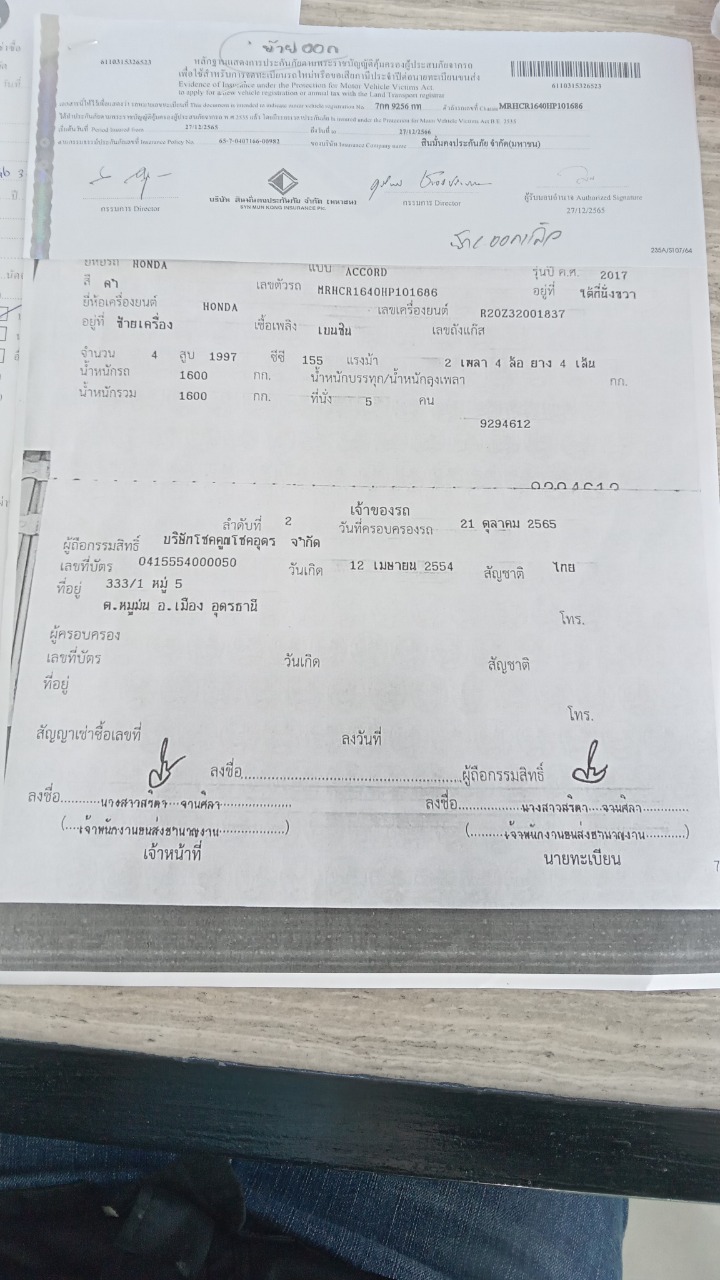 ย้ายออก
6110315326523
หลักฐานแสดงการประกันภัยตามพระราชบัญญัติคุ้มครองผู้ประสบภัยจากรถ
เพื่อใช้สำหรับการจดทะเบียนรถใหม่หรือขอเสียภาษีประจำปีต่อนายทะเบียนขนส่ง
Evidence of Insurance under the Protection for Motor Vehicle Victims Act.
to apply for a new vehicle registration or annual tax with the Land Transport registrar
6110315326523
เอกสารนี้ให้ไว้เพื่อแสดงว่า รถหมายเลขทะเบียนที่ This document is intended to indicate motor vehicle registration No. 7กก 9256 กท MRHCR1640HP101686
ได้ทำประกันภัยตามพระราชบัญญัติคุ้มครองผู้ประสบภัยจากรถ พ.ศ.2535 แล้ว Motor Vehicle Victims Act B.E. 2535
เริ่มต้นวันที่ Period Insured From 27/12/2565 ถึงวันที่ to 27/12/2566
ตามกรมธรรม์ประกันภัยเลขที่ Insurance Policy No. 65-7-0407166-00982 ของบริษัท Insurance Company name สินมั่นคงประกันภัย จำกัด(มหาชน)
กรรมการ Director
บริษัท สินมั่นคงประกันภัย จำกัด (มหาชน)
SYN MUN KONG INSURANCE Plc.
กรรมการ Director
ผู้รับมอบอำนาจ Authorized Signature
27/12/2565
235A/S107/64
ยี่ห้อรถ HONDA แบบ ACCORD รุ่นปี ค.ศ. 2017
สี ดำ เลขตัวรถ MRHCR1640HP101686 อยู่ที่ ใต้ที่นั่งขวา
ยี่ห้อเครื่องยนต์ HONDA เลขเครื่องยนต์ R20Z32001837
อยู่ที่ ซ้ายเครื่อง เชื้อเพลิง เบนซิน เลขถังแก๊ส
จำนวน 4 สูบ 1997 ซีซี 155 แรงม้า 2 เพลา 4 ล้อ ยาง 4 เส้น
น้ำหนักรถ 1600 กก. น้ำหนักบรรทุก/น้ำหนักลงเพลา กก.
น้ำหนักรวม 1600 กก. ที่นั่ง 5 คน
9294612
9294612
เจ้าของรถ
ลำดับที่ 2 วันที่ครอบครองรถ 21 ตุลาคม 2565
ผู้ถือกรรมสิทธิ์ บริษัทโชคคูณโชคอุดร จำกัด
เลขที่บัตร 0415554000050 วันเกิด 12 เมษายน 2554 สัญชาติ ไทย
ที่อยู่ 333/1 หมู่ 5
ต.หมูม่น อ.เมือง อุดรธานี
โทร.
ผู้ครอบครอง
เลขที่บัตร วันเกิด สัญชาติ
ที่อยู่
โทร.
สัญญาเช่าซื้อเลขที่ ลงวันที่
ลงชื่อ..........ผู้ถือกรรมสิทธิ์
ลงชื่อ..........นางสาวสริตา จานศิลา.......... ลงชื่อ..........นางสาวสริตา จานศิลา..........
(....เจ้าพนักงานขนส่งชำนาญงาน..........) (........เจ้าพนักงานขนส่งชำนาญงาน..........)
เจ้าหน้าที่ นายทะเบียน